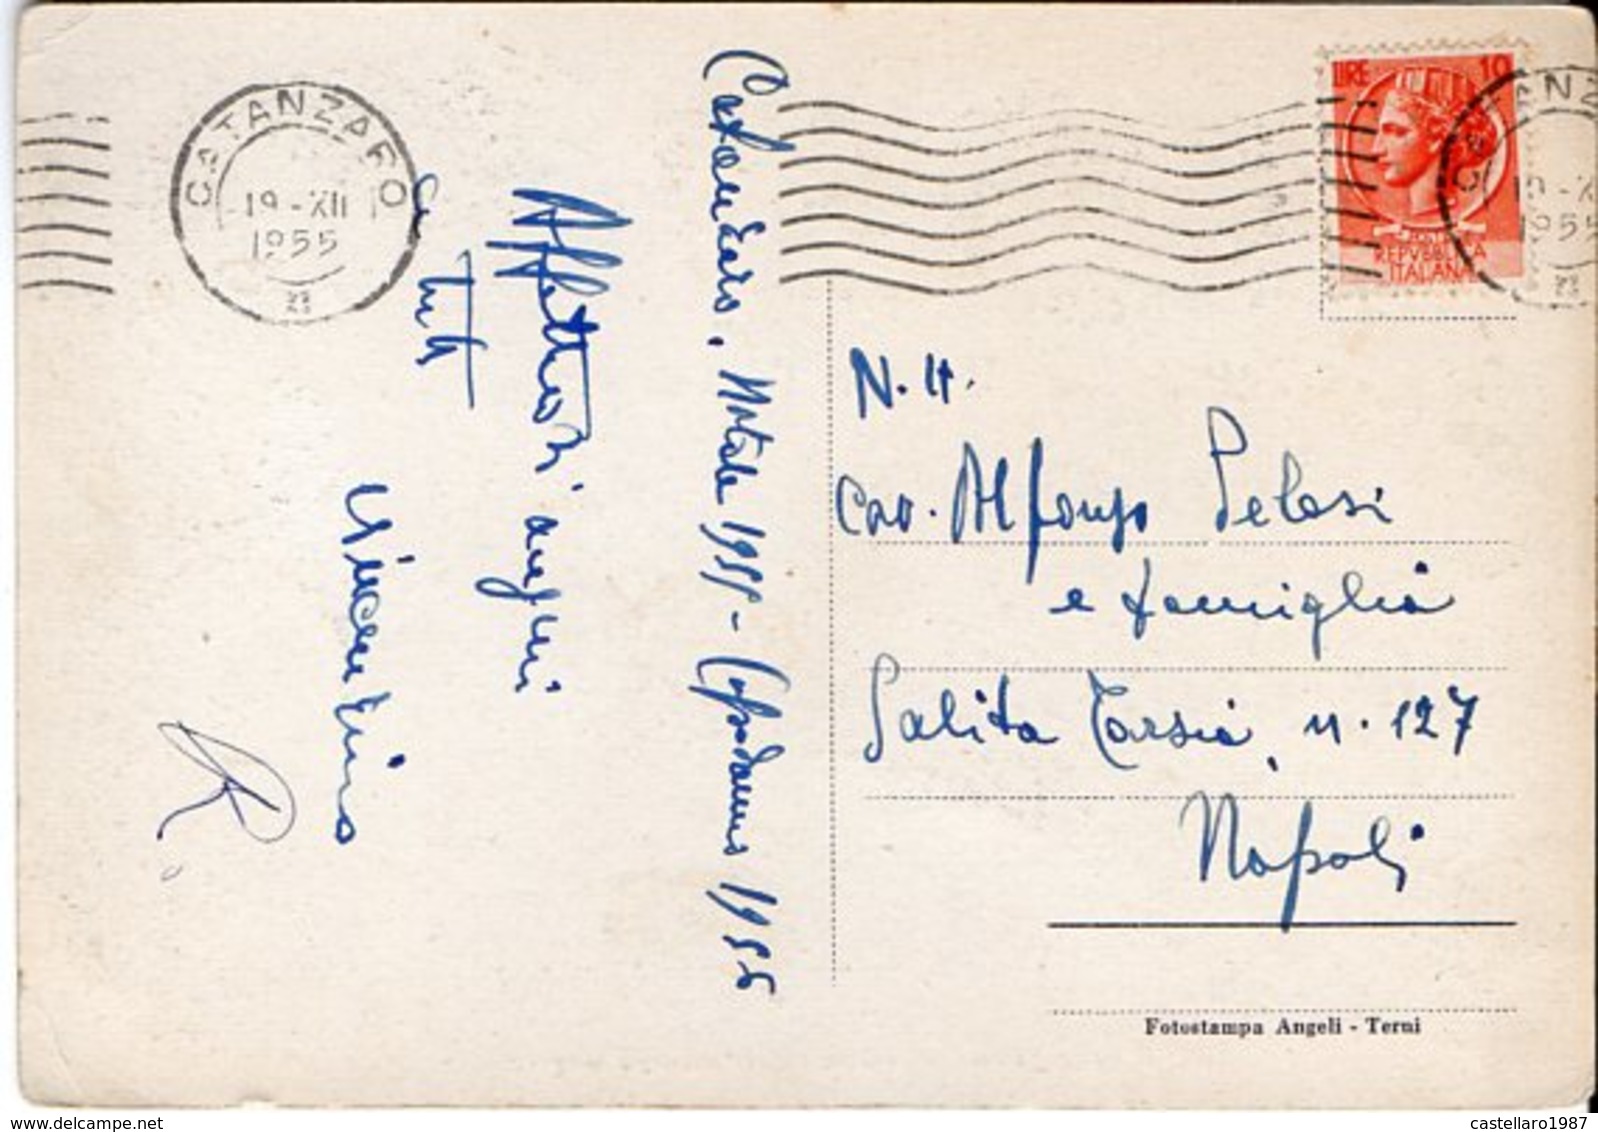 CATANZARO
19-XII
1955
LIRE 10
POSTE
REPVBBLICA
ITALIANA
Catanzaro, Natale 1955 - Capodanno 1956
Affettuosi auguri
a tutti
Vincenzino
R.
N. H.
Cav. Alfonso Pelosi
e famiglia
Salita Tarsia, n. 127
Napoli
Fotostampa Angeli - Terni
castellaro1987